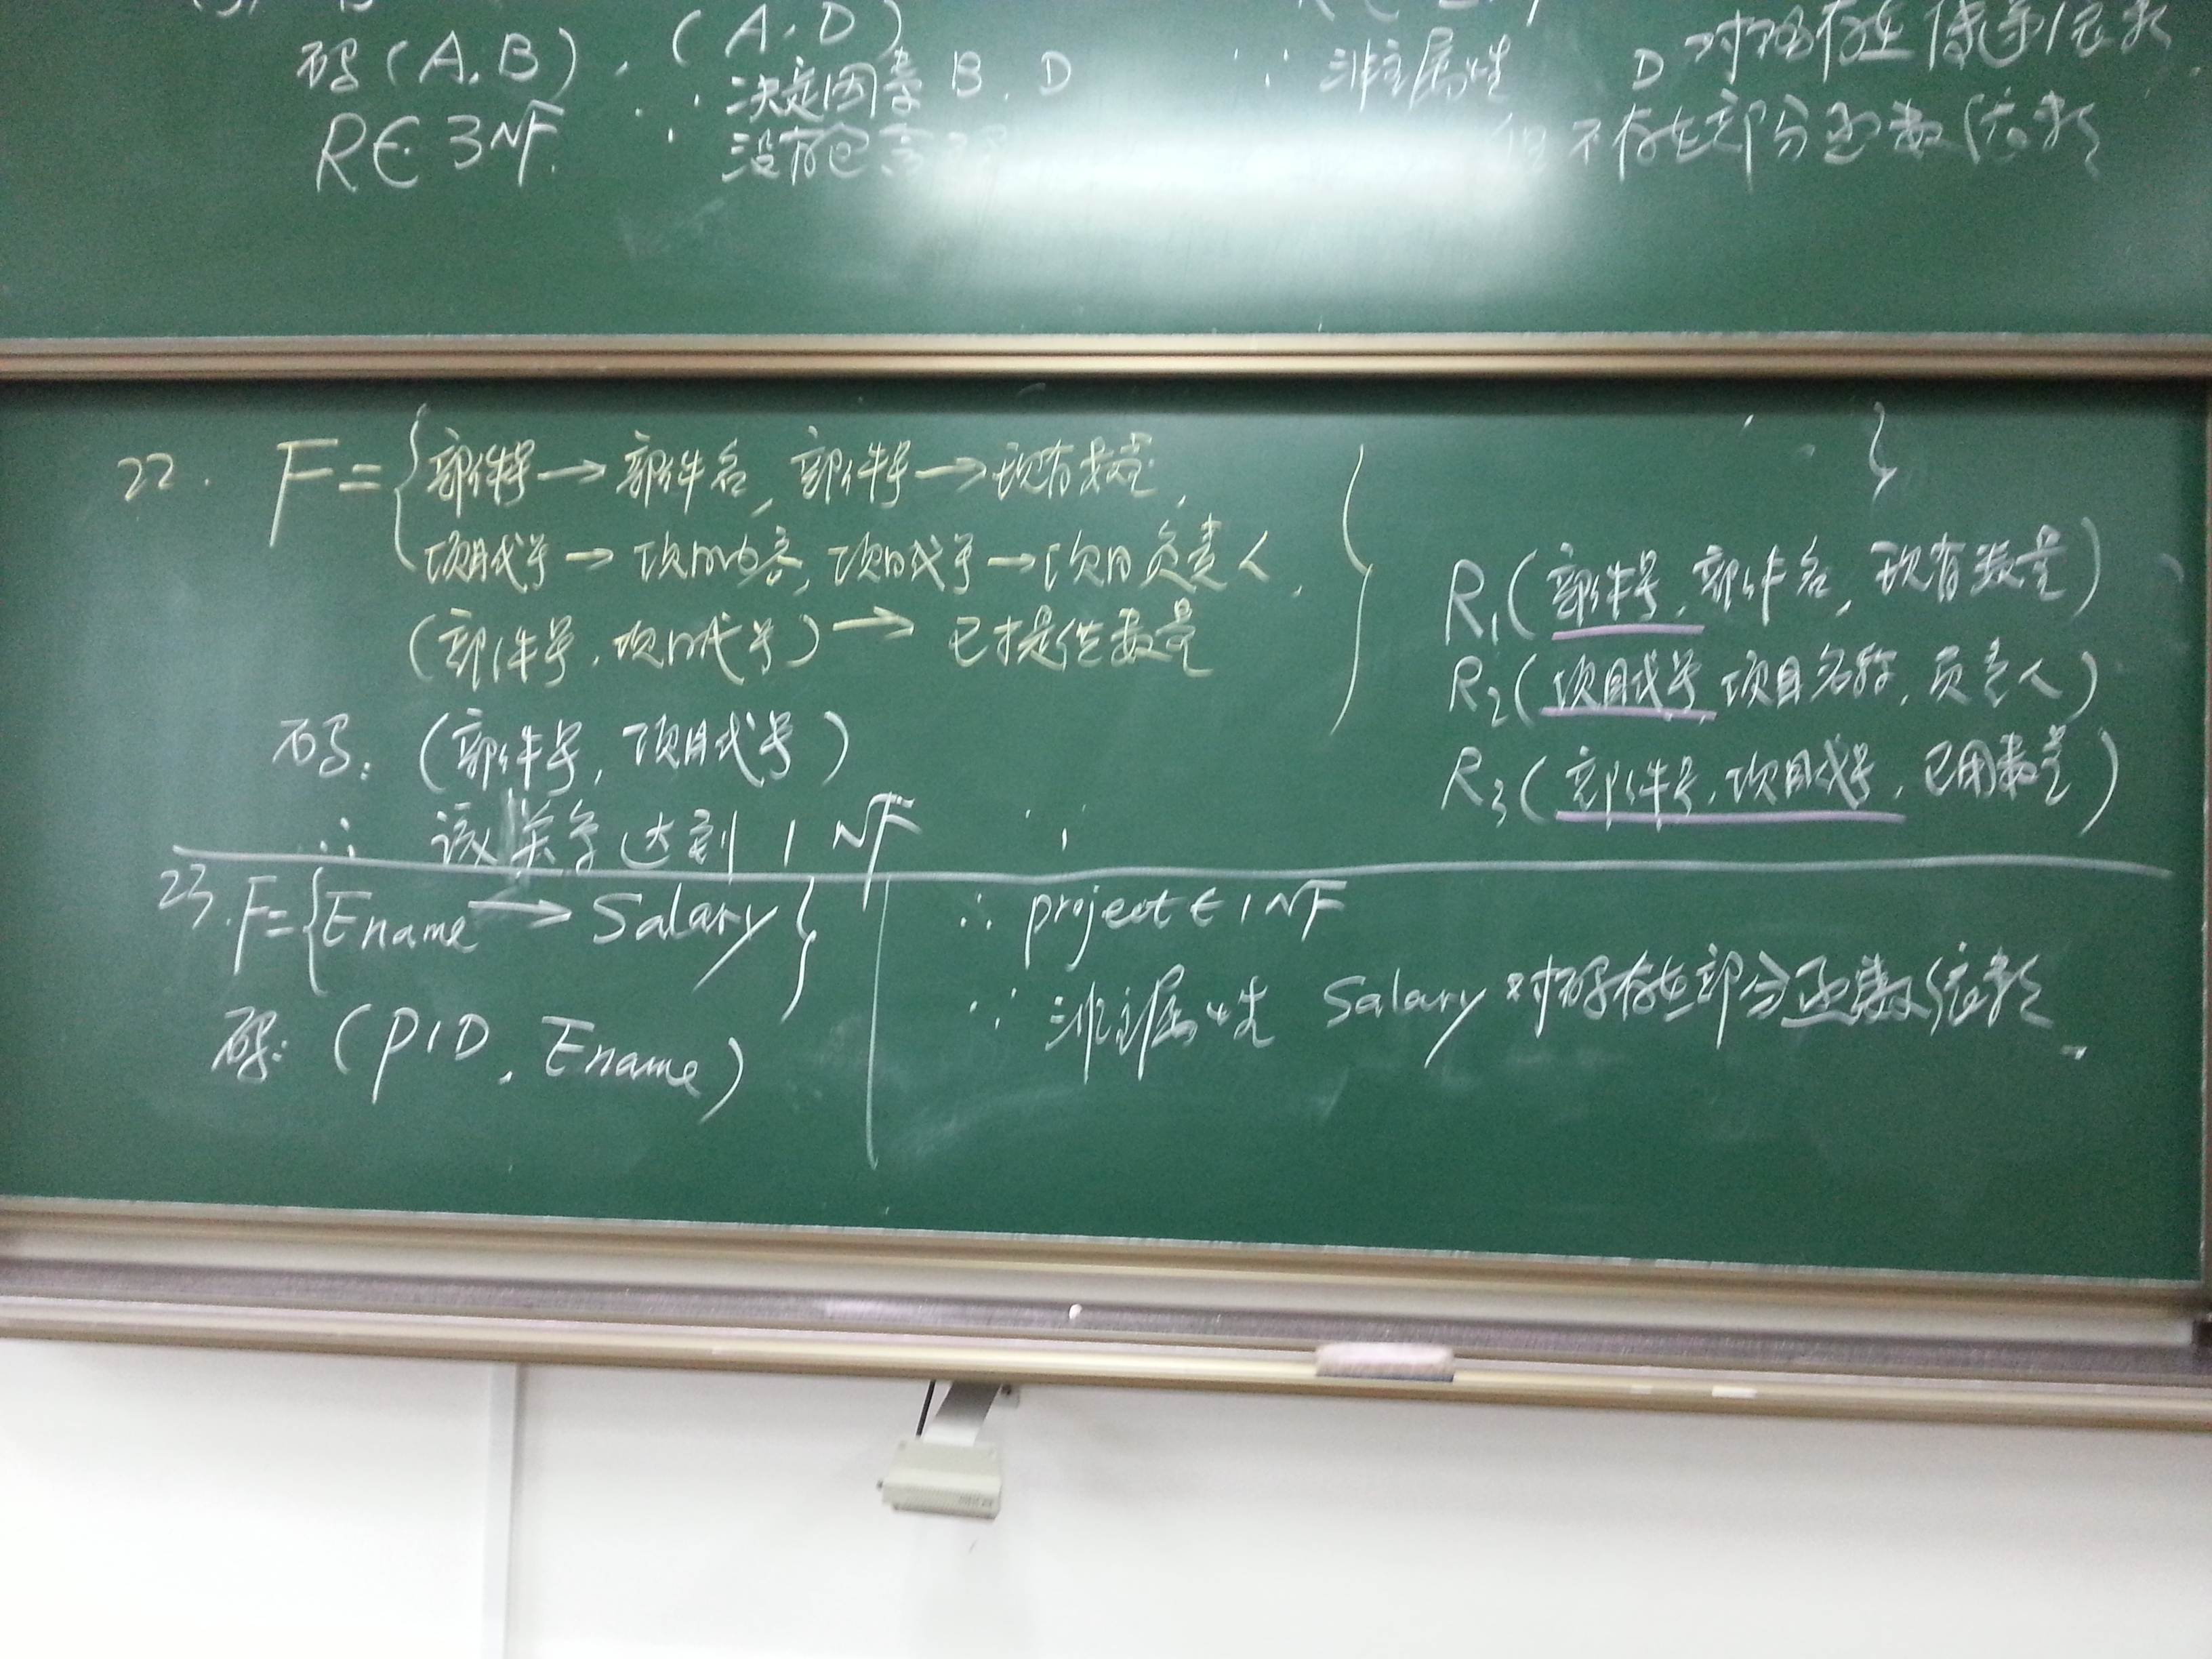 码(A,B),(A,D)
R∈3NF. ∵ 决定因素 B、D
没有包含
∵ 非主属性 D 对码存在传递依赖.
但不存在部分函数依赖
22. F={部件号→部件名,部件号→现有数量,
项目代号→项目内容,项目代号→项目负责人,
(部件号,项目代号)→已提供数量
码:(部件号,项目代号)
∴ 该关系达到1NF ∵
}
R1(部件号,部件名,现有数量)
R2(项目代号,项目名称,负责人)
R3(部件号,项目代号,已用数量)
23. F={Ename→Salary}
码:(PID,Ename)
∴ project∈1NF
∵ 非主属性 Salary 对码存在部分函数依赖.